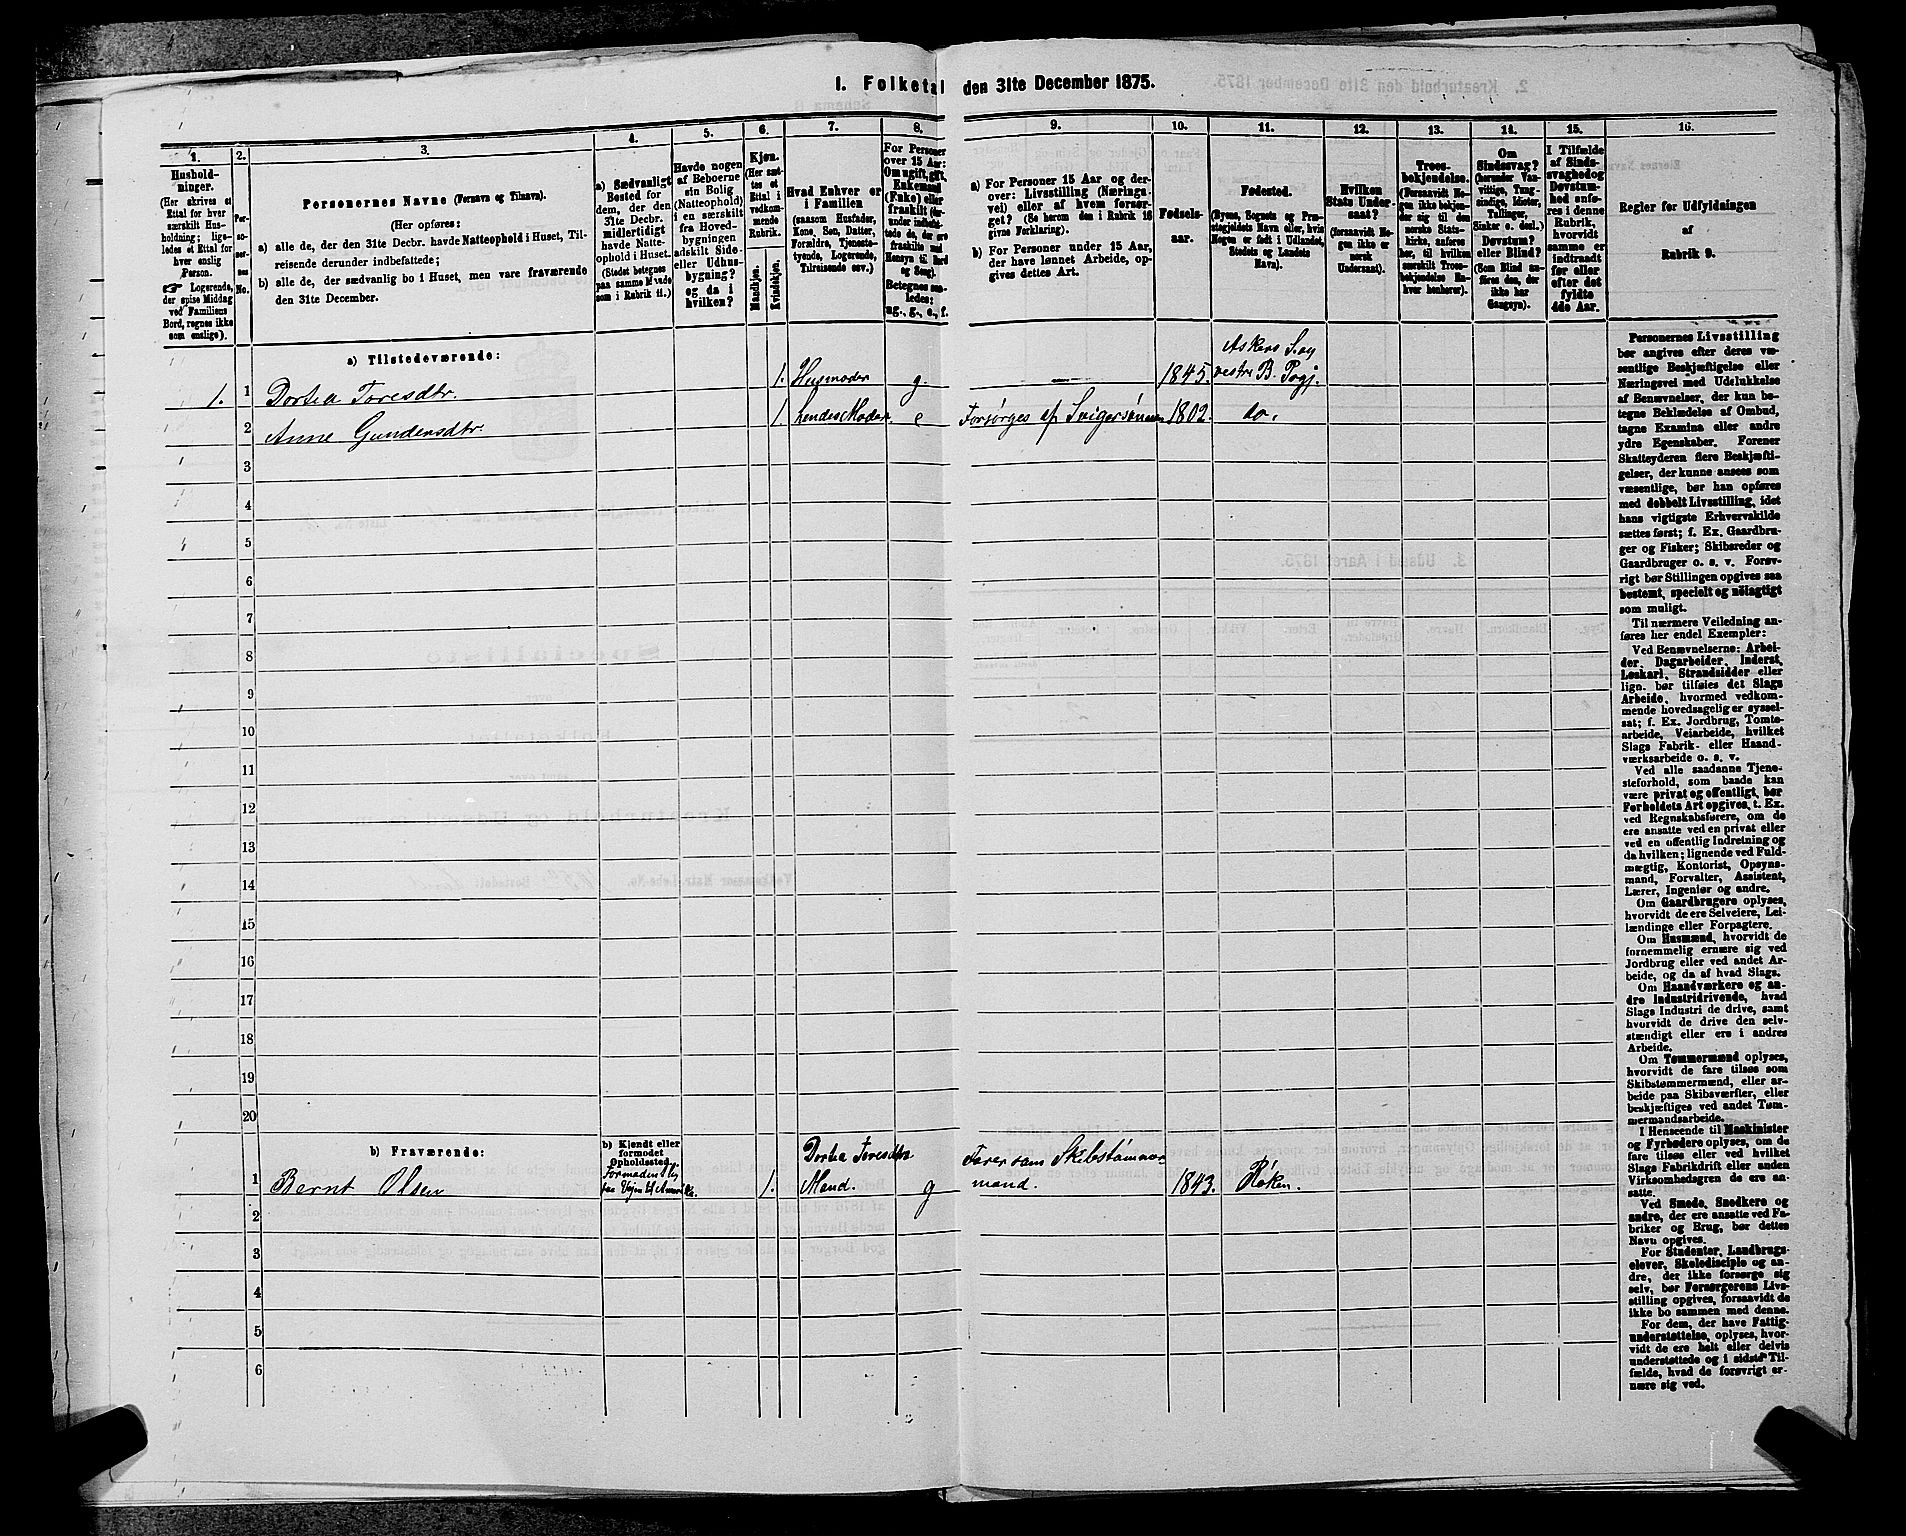 1. Folketal den 31te December 1875.
1.
2.
3.
4.
5.
6.
7.
8.
9.
10.
11.
12.
13.
14.
15.
16.
Hushold-
ninger.
(Her skrives et
Ettal for hver
særskilt Hus-
holdning; lige-
ledes et Ettal for
hver enslig
Person.
☛ Logerende,
der spise Middag
ved Familiens
Bord, regnes ikke
som enslige).
Per-
so-
ner-
nes
No.
Personernes Navne (Fornavn og Tilnavn).
(Her opføres:
a) alle de, der den 31te Decbr. havde Natteophold i Huset, Til-
reisende derunder indbefattede;
b) alle de, der sædvanlig bo i Huset, men vare fraværende
den 31te December.
a) Sædvanligt
Bosted for
dem, der den
31te Decbr.
midlertidigt
havde Natte-
ophold i Huset.
(Stedet betegnes
paa samme Maade
som i Rubrik 11.)
Havde nogen
af Beboerne
sin Bolig
(Natteophold)
i en særskilt
fra Hoved-
bygningen
adskilt Side-
eller Udhus-
bygning?
og da i
hvilken?
Kjøn.
(Her sæt-
tes et
Ettal i
vedkom-
mende
Rubrik.
Mandkjøn.
Kvindekjøn.
Hvad Enhver er
i Familien
(saasom Husfader,
Kone, Søn, Datter,
Forældre, Tjeneste-
tyende, Logerende,
Tilreisende osv.)
For Personer
over 15 Aar:
Om ugift, gift,
Enkemand
(Enke) eller
fraskilt (der-
under indbefat-
tede de, der ere
fraskilte med
Hensyn til Bord
og Seng).
Betegnes saa-
ledes:
ug., g., e., f.
a) For Personer 15 Aar og der-
over: Livsstilling (Nærings-
vei) eller af hvem forsør-
get? (Se herom den i Rubrik 16
givne Forklaring).
b) For Personer under 15 Aar,
der have lønnet Arbeide, op-
gives dettes Art.
Fødsels-
aar.
Fødested.
(Byens, Sognets og Præ-
stegjeldets Navn eller, hvis
Nogen er født i Udlandet,
Stedets og Landets
Navn).
Hvilken
Stats Under-
saat?
(forsaavidt No-
gen ikke er
norsk
Undersaat).
Troes-
bekjendelse.
(Forsaavidt No-
gen ikke bekjen-
der sig til den
norske Stats-
kirke, anføres
her, til hvilken
særskilt Troes-
bekjendelse En-
hver henhører).
Om
Sindssvag?
(herunder Van-
vittige, Tung-
sindige, Idioter,
Tullinger,
Sinker o. desl.)
Døvstum?
eller Blind?
(Som Blind an-
føres den, der
ikke har
Gangsyn).
I Tilfælde
af Sinds-
svaghed og
Døvstum-
hed anfø-
res i denne
Rubrik,
hvorvidt
samme er
indtraadt
før eller
efter det
fyldte
4de Aar.
Regler for Udfyldningen
af
Rubrik 9.
a) Tilstedeværende:
1. 1 Dortea Toresdtr. 1. Husmoder g. — 1845. Askers S. og
vestre B. Prgj.
2 Anne Gundersdtr. 1. hendes Moder. e Forsørges af Svigersønnen 1802. do.
3
4
5
6
7
8
9
10
11
12
13
14
15
16
17
18
19
20
b) Fraværende:
b) Kjendt eller
formodet
Opholdssted.
1 Bernt Olsen
1. Dortea Toresdtr
Mand. g Farer som Skibstømmer
mand. 1843. Røken.
2
3
4
5
6
Personernes Livsstilling
bør angives efter deres væ-
sentlige Beskjæftigelse eller
Næringsvei med Udelukkelse
af Benævnelser, der kun be-
tegne Beklædelse af Ombud,
tagne Examina eller andre
ydre Egenskaber. Forener
Skatteyderen flere Beskjæfti-
gelser, der kunne ansees som
væsentlige, bør han opføres
med dobbelt Livsstilling, idet
hans vigtigste Erhvervskilde
sættes først; f. Ex. Gaardbru-
ger og Fisker; Skibsreder og
Gaardbruger o. s. v. Forøv-
rigt bør Stillingen opgives saa
bestemt, specielt og nøiagtigt
som muligt.
Til nærmere Veiledning an-
føres her endel Exempler:
Ved Benævnelserne: Arbei-
der, Dagarbeider, Inderst,
Løskarl, Strandsidder eller
lign. bør tilføies det Slags
Arbeide, hvormed vedkom-
mende hovedsagelig er syssel-
sat; f. Ex. Jordbrug, Tomte-
arbeide, Veiarbeide, hvilket
Slags Fabrik- eller Haand-
værksarbeide o. s. v.
Ved alle saadanne Tjene-
steforhold, som baade kan
være privat og offentligt, bør
Forholdets Art opgives, t. Ex.
ved Regnskabsførere, om de
ere ansatte ved en privat eller
ved en offentlig Indretning og
da hvilken; lignende ved Fuld-
mægtig, Kontorist, Opsyns-
mand, Forvalter, Assistent,
Lærer, Ingeniør og andre.
Om Gaardbrugere oplyses,
hvorvidt de ere Selveiere, Lei-
lændinge eller Forpagtere.
Om Husmænd, hvorvidt de
fornemmelig ernære sig ved
Jordbrug eller ved andet Ar-
beide, og da af hvad Slags.
Om Haandværkere og an-
dre Industridrivende, hvad
Slags Industri de drive, samt
hvorvidt de drive den selv-
stændigt eller ere i andres
Arbeide.
Om Tømmermænd oplyses,
hvorvidt de fare tilsøs som
Skibstømmermænd, eller ar-
beide paa Skibsværfter, eller
beskjæftiges ved andet Tøm-
mermandsarbeide.
I Henseende til Maskinister
og Fyrbødere oplyses, om de
fare tilsøs eller ved hvilket
Slags Fabrikdrift eller anden
Virksomhedsgren de ere an-
satte.
Ved Smede, Snedkere og
andre, der ere ansatte ved Fa-
briker og Brug, bør dettes
Navn opgives.
For Studenter, Landbrugs-
elever, Skoledisciple og an-
dre, der ikke forsørge sig
selv, bør Forsørgerens Livs-
stilling opgives, forsaavidt de
ikke bo sammen med denne.
For dem, der have Fattig-
understøttelse, oplyses, hvor-
vidt de ere helt eller delvis
understøttede og i sidste Til-
fælde, hvad de forøvrigt er-
nære sig ved.